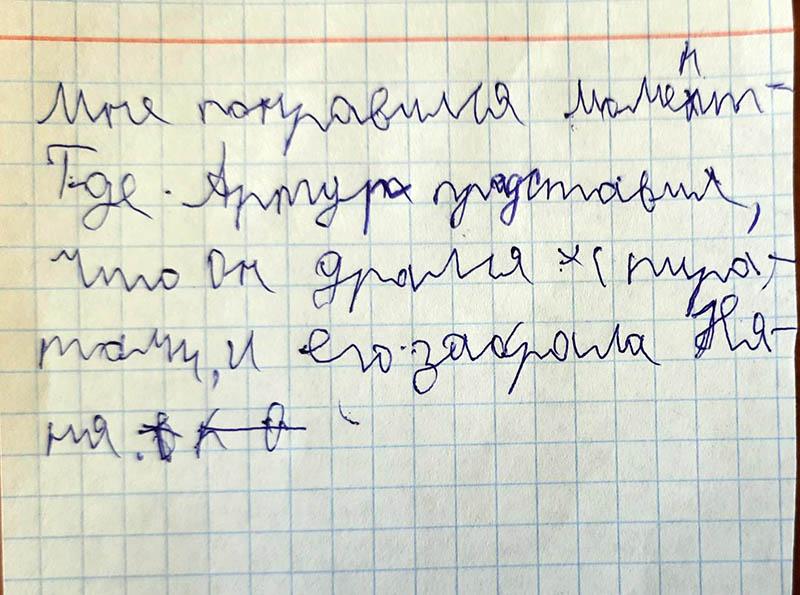 Мне понравился момент-
Где Артур представил,
что он дрался с пира-
тами, и его забрала Ня-
ня.